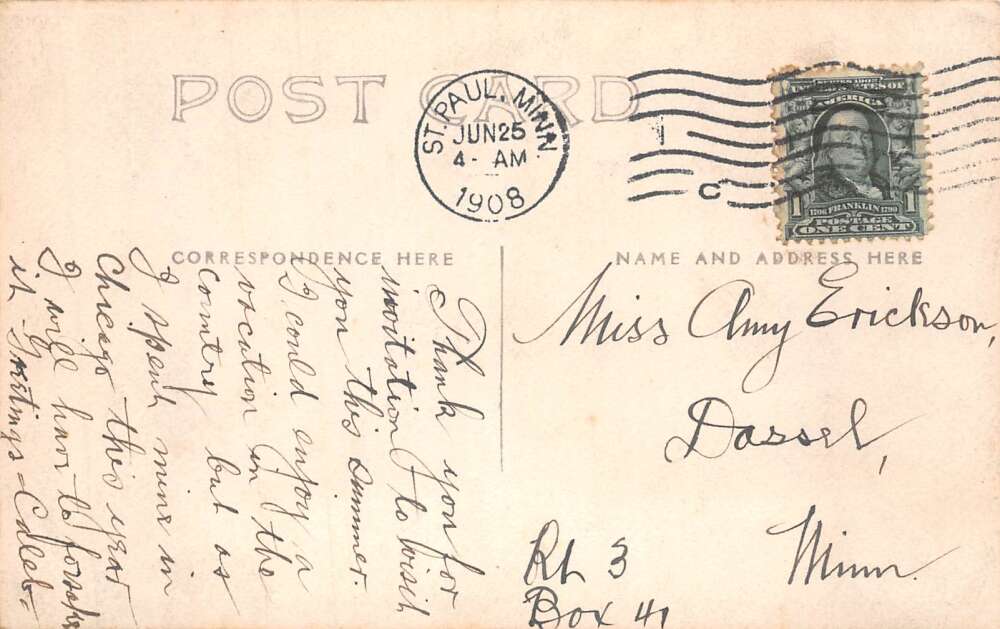 POST CARD
ST. PAUL, MINN
JUN 25
4- AM
1908
1
C
SERIES 1902
UNITED STATES OF
AMERICA
1706 FRANKLIN 1790
1
POSTAGE
ONE CENT
CORRESPONDENCE HERE
NAME AND ADDRESS HERE
Thank you for
invitation to visit
you this summer.
I could enjoy a
vacation in the
country but as
I spent mine in
Chicago this year
I will have to forsake
it. Greetings - Caleb -
Miss Amy Erickson,
Dassel,
Minn.
Rt 3
Box 41